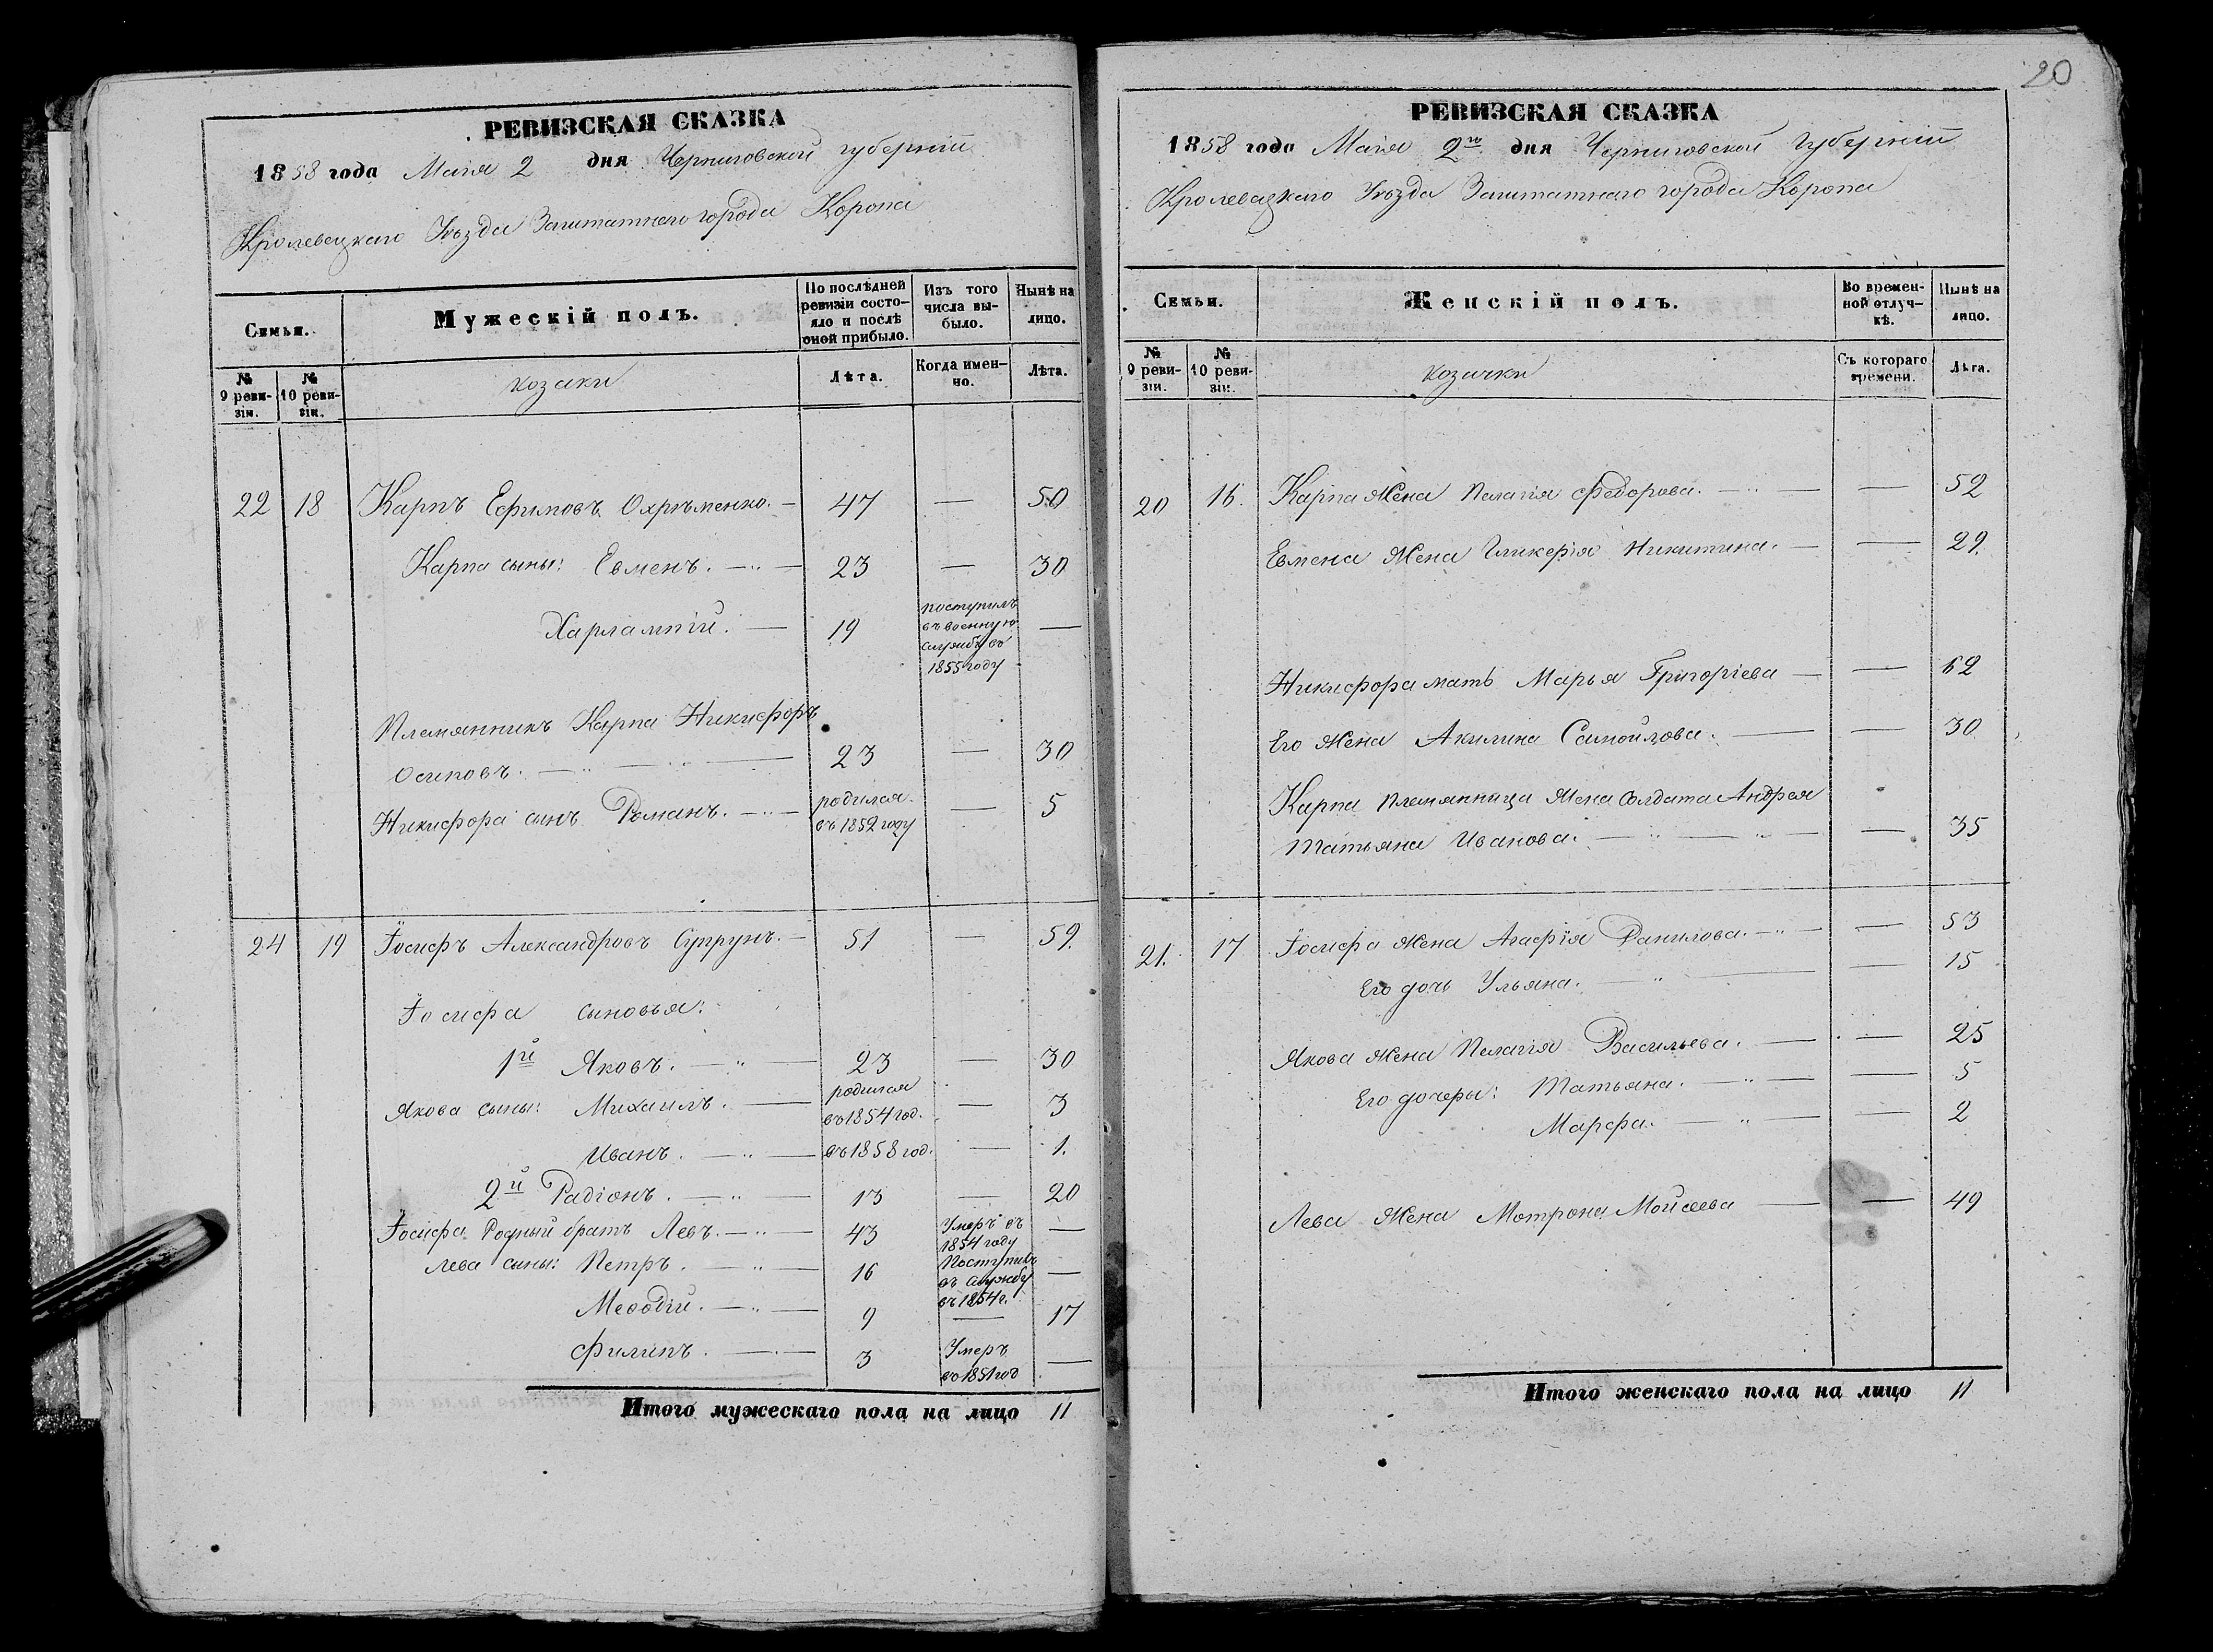 РЕВИЗСКАЯ СКАЗКА
1858 года Маія 2 дня Черниговской губерніи
Кролевецкаго Уѣзда Заштатнаго города Коропа
Семьи.
Мужескій полъ.
По послѣдней ревизіи состо-
яло и послѣ
оной прибыло.
Изъ того
числа вы-
было.
Нынѣ на
лицо.
№
9 реви-
зіи.
№
10 реви-
зіи.
козаки
Лѣта.
Когда имен-
но.
Лѣта.
22 18 Карпъ Ефимовъ Охрѣменко. — 47 — 50
Карпа сыны: Евменъ. — 23 — 30
Харлампій. — 19 поступилъ
въ военную
службу въ
1855 году —
Племянникъ Карпа Никифоръ
Осиповъ. — 23 — 30
Никифора сынъ Романъ. — родился
въ 1852 году — 5
24 19 Іосифъ Александровъ Супрунъ. — 51 — 59.
Іосифа сыновья:
1й Яковъ. — 23 — 30
Якова сыны: Михаилъ. — родился
въ 1854 год. — 3
Иванъ. — въ 1858 год. — 1.
2й Радіонъ. — 13 — 20
Іосифа Родный братъ Левъ. — 43 Умеръ въ
1854 году —
Лева сыны: Петръ. — 16 Поступилъ
въ службу
въ 1854 г. —
Меѳодій. — 9 — 17
Филипъ. — 3 Умеръ
въ 1851 год —
Итого мужескаго пола на лицо 11
20
РЕВИЗСКАЯ СКАЗКА
1858 года Маія 2го дня Черниговской Губерніи
Кролевецкаго Уѣзда Заштатнаго города Коропа
Семьи.
Женскій полъ.
Во времен-
ной отлуч-
кѣ.
Нынѣ на
лицо.
№
9 реви-
зіи.
№
10 реви-
зіи.
козачки
Съ котораго
времени.
Лѣта.
20 16. Карпа Жена Пелагія Федорова. — — 52
Евмена Жена Гликерія Никитина. — — 29.
Никифора мать Марья Григоріева — — 62
Его Жена Акилина Самойлова. — — 30
Карпа племянница Жена Солдата Андрея
Татьяна Иванова. — — 35
21. 17 Іосифа Жена Агафія Данилова. — — 53
Его дочь Ульяна. — — 15
Якова Жена Пелагія Васильева. — — 25
Его дочеры: Татьяна. — — 5
Марфа. — — 2
Лева Жена Мотрона Мойсеева — — 49
Итого женскаго пола на лицо 11